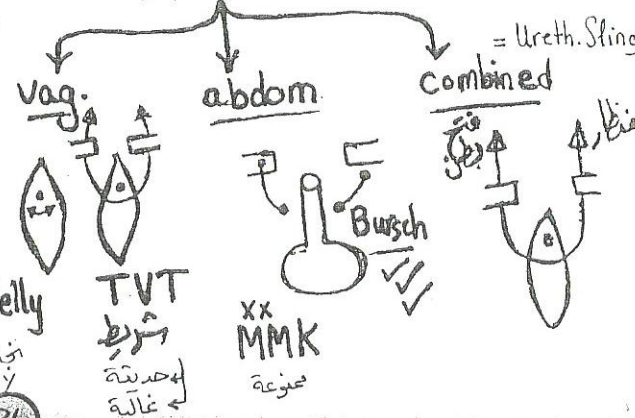 = Ureth. Sling
vag.
abdom
combined
فتح
بطن
منظار
Bursch
elly
TVT
شريط
حديثة
غالية
xx
MMK
ممنوعة